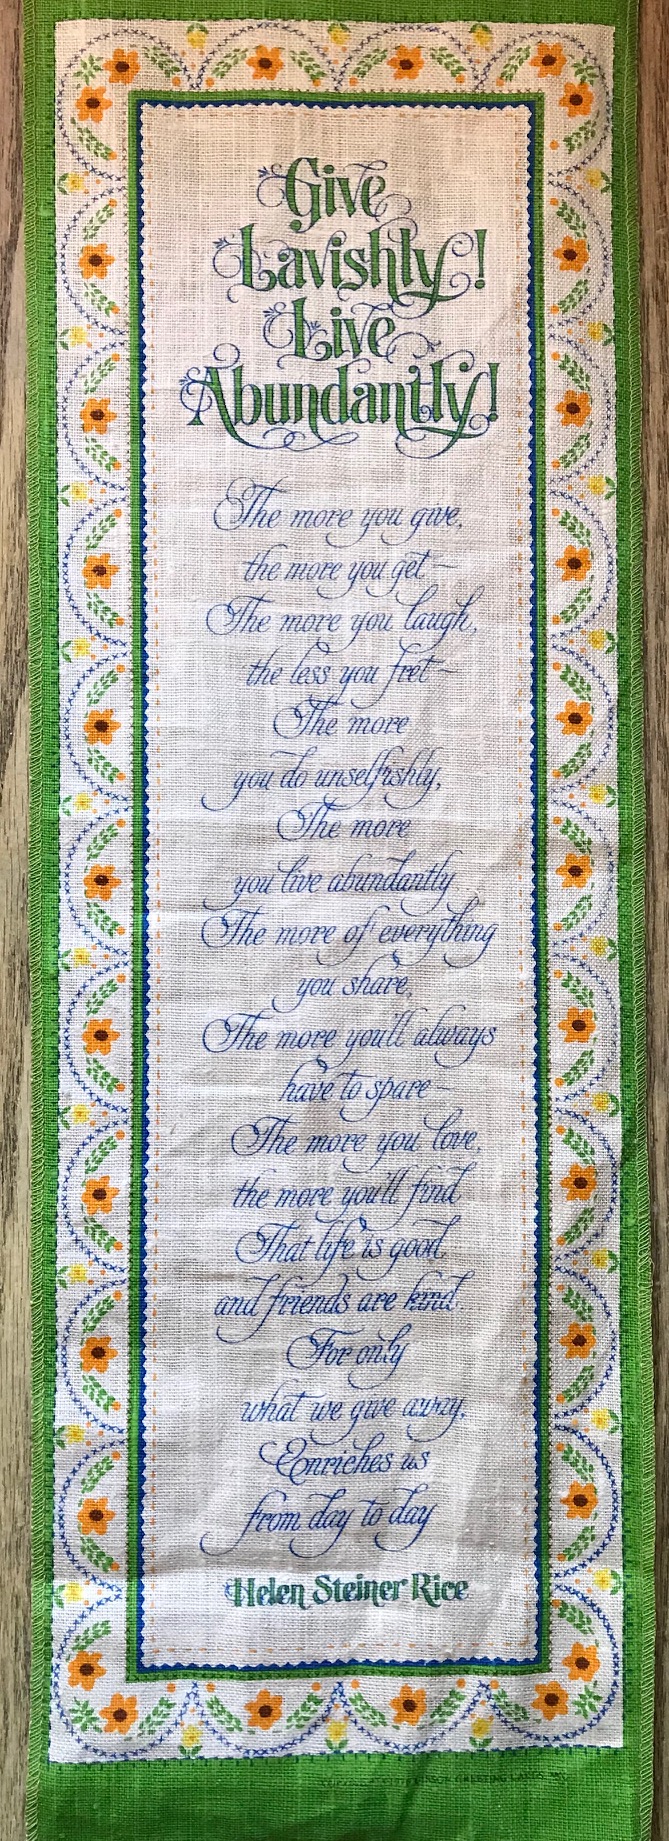 Give
Lavishly!
Live
Abundantly!
The more you give,
the more you get—
The more you laugh,
the less you fret—
The more
you do unselfishly,
The more
you live abundantly.
The more of everything
you share,
The more you'll always
have to spare—
The more you love,
the more you'll find
That life is good
and friends are kind.
For only
what we give away,
Enriches us
from day to day
Helen Steiner Rice
GREETING CARDS